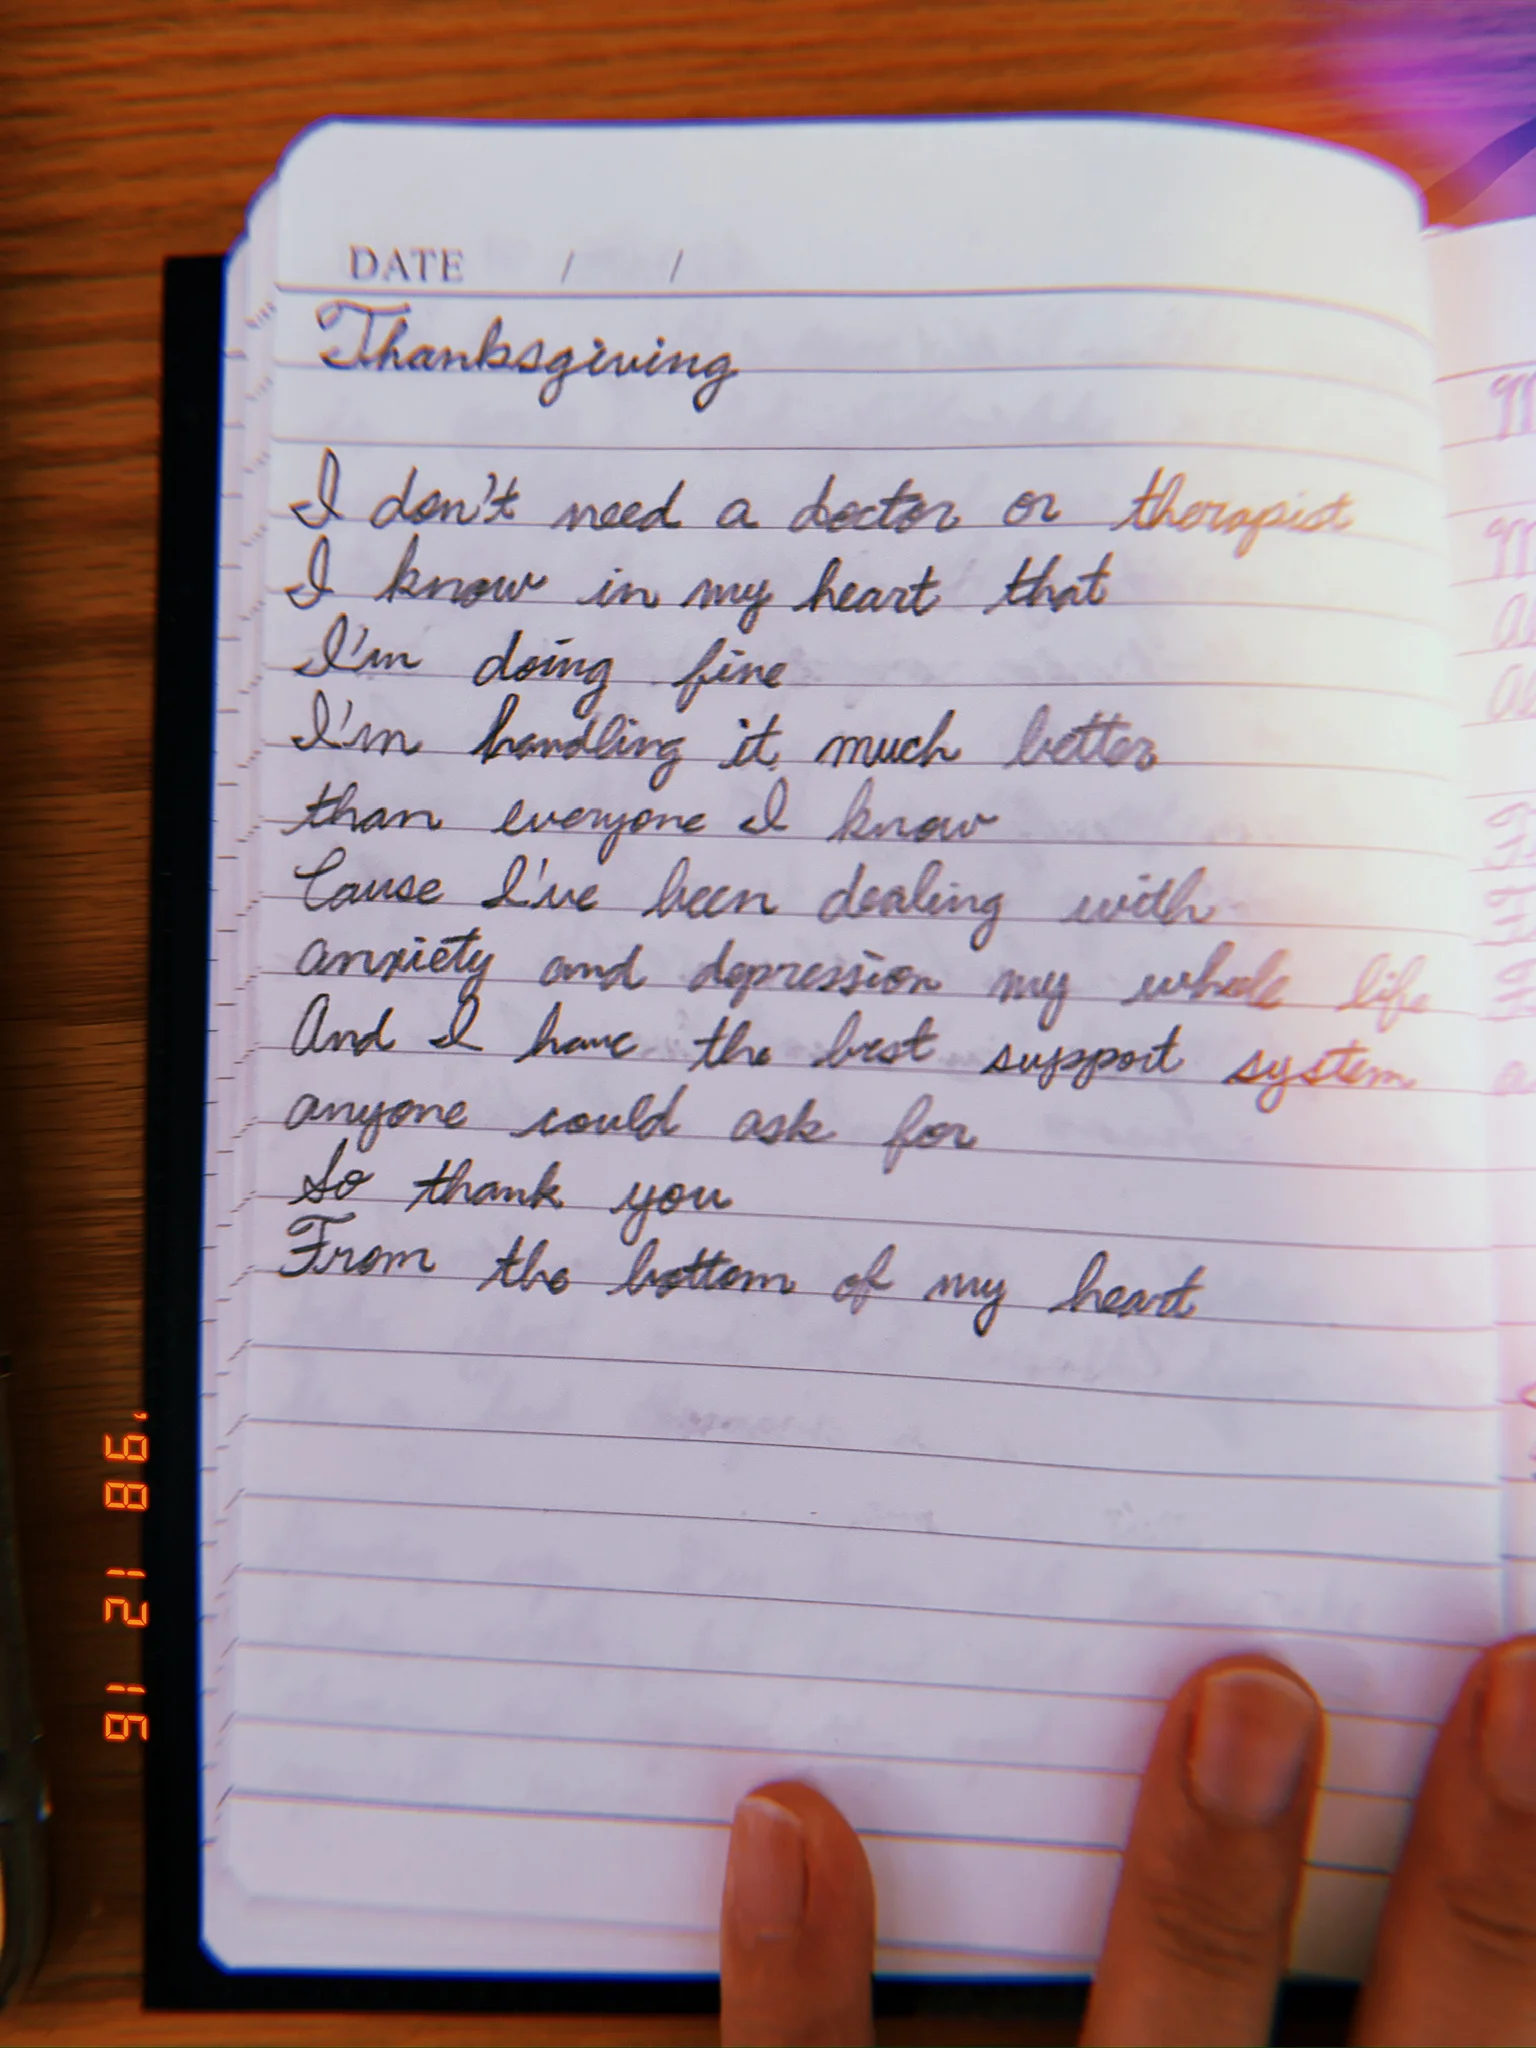 DATE / /
Thanksgiving
I don't need a doctor or therapist
I know in my heart that
I'm doing fine
I'm handling it much better
than everyone I know
Cause I've been dealing with
anxiety and depression my whole life
And I have the best support system
anyone could ask for
So thank you
From the bottom of my heart
'98 12 16